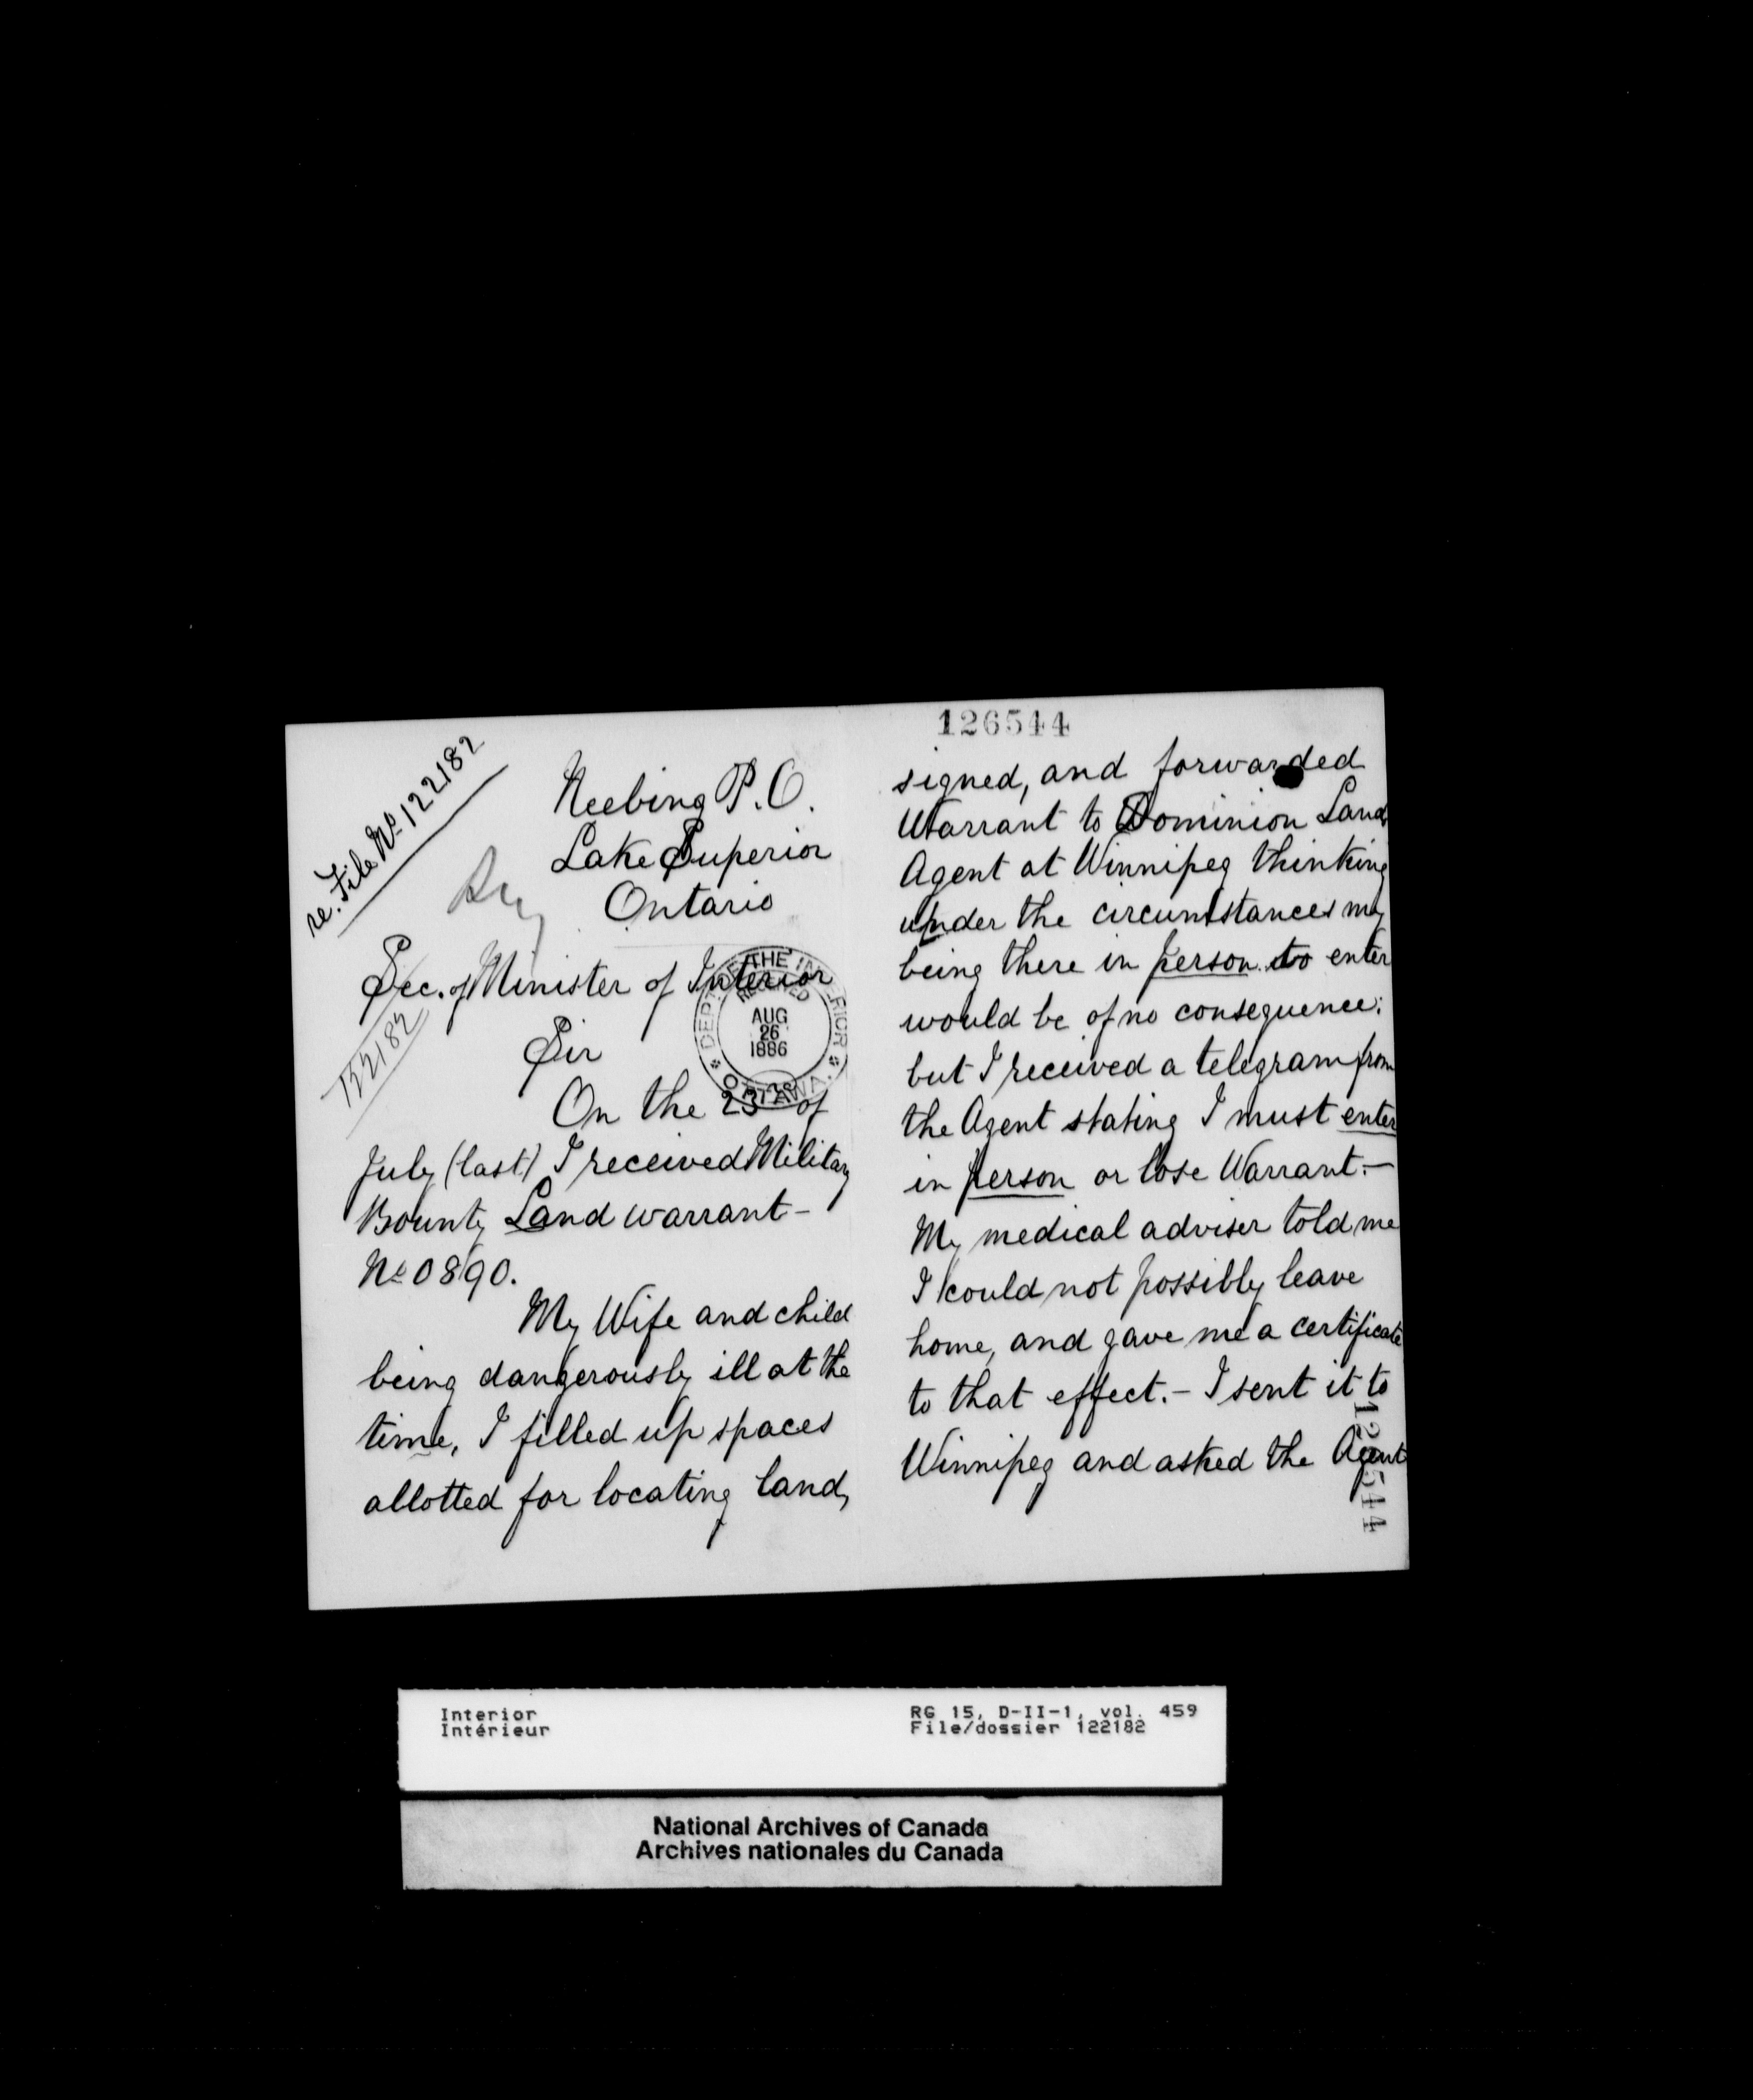 re. File No. 122182
Neebing P.O.
Lake Superior
Ontario
Sec. of Minister of Interior
122182
DEPT. OF THE INTERIOR
RECEIVED
AUG
26
1886
OTTAWA
Sir
On the 23rd of
July (last) I received Military
Bounty Land warrant-
No 0890.
My Wife and child
being dangerously ill at the
time, I filled up spaces
allotted for locating land,
126544
signed, and forwarded
Warrant to Dominion Land
Agent at Winnipeg thinking
under the circumstances my
being there in person to enter
would be of no consequence;
but I received a telegram from
the Agent stating I must enter
in person or lose Warrant.-
My medical adviser told me
I could not possibly leave
home, and gave me a certificate
to that effect.- I sent it to
Winnipeg and asked the Agent
126544
Interior
Intérieur
RG 15, D-II-1, vol. 459
File/dossier 122182
National Archives of Canada
Archives nationales du Canada